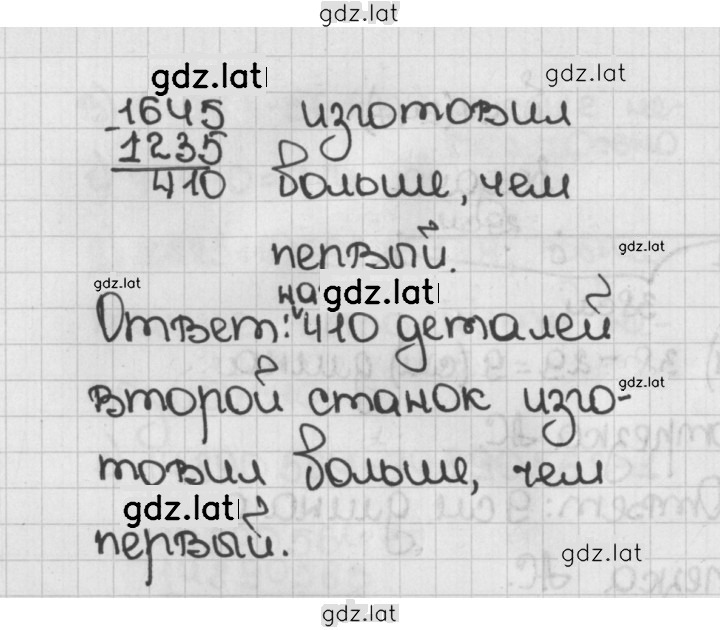 gdz.lat
gdz.lat
gdz.lat
1645 изготовил
- 1235
410 больше, чем
первый.
gdz.lat
gdz.lat
на gdz.lat
Ответ: 410 деталей
второй станок изго-
gdz.lat
товил больше, чем
gdz.lat
первый.
gdz.lat
gdz.lat